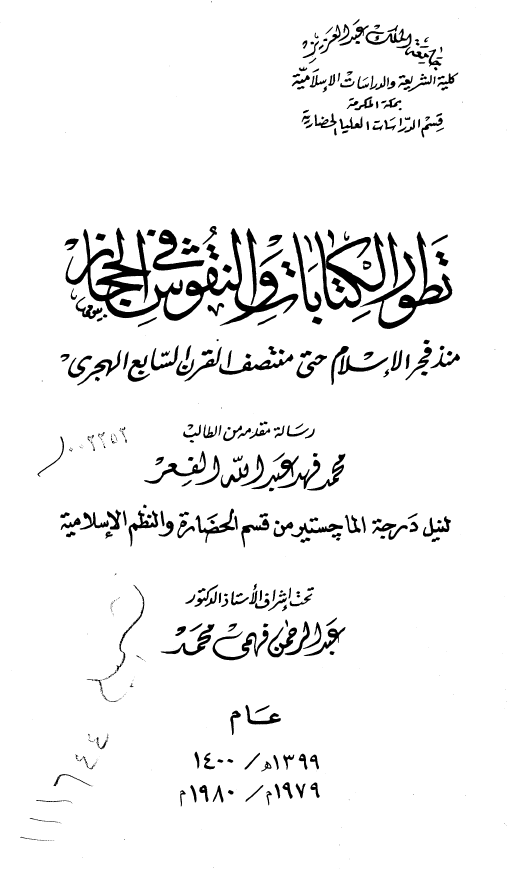 جامعة الملك عبد العزيز
كلية الشريعة والدراسات الإسلامية
بمكة المكرمة
قسم الدراسات العليا الحضارية
تطور الكتابات والنقوش في الحجاز
منذ فجر الإسلام حتى منتصف القرن السابع الهجرى
رسالة مقدمه من الطالب
محمد فهد عبد الله الفعر
٠٠٢٢٥٢
لنيل درجة الماجستير من قسم الحضارة والنظم الإسلامية
تحت إشراف الأستاذ الدكتور
عبد الرحمن فهمى محمد
عام
١٣٩٩هـ / ١٤٠٠
١٩٧٩م / ١٩٨٠م